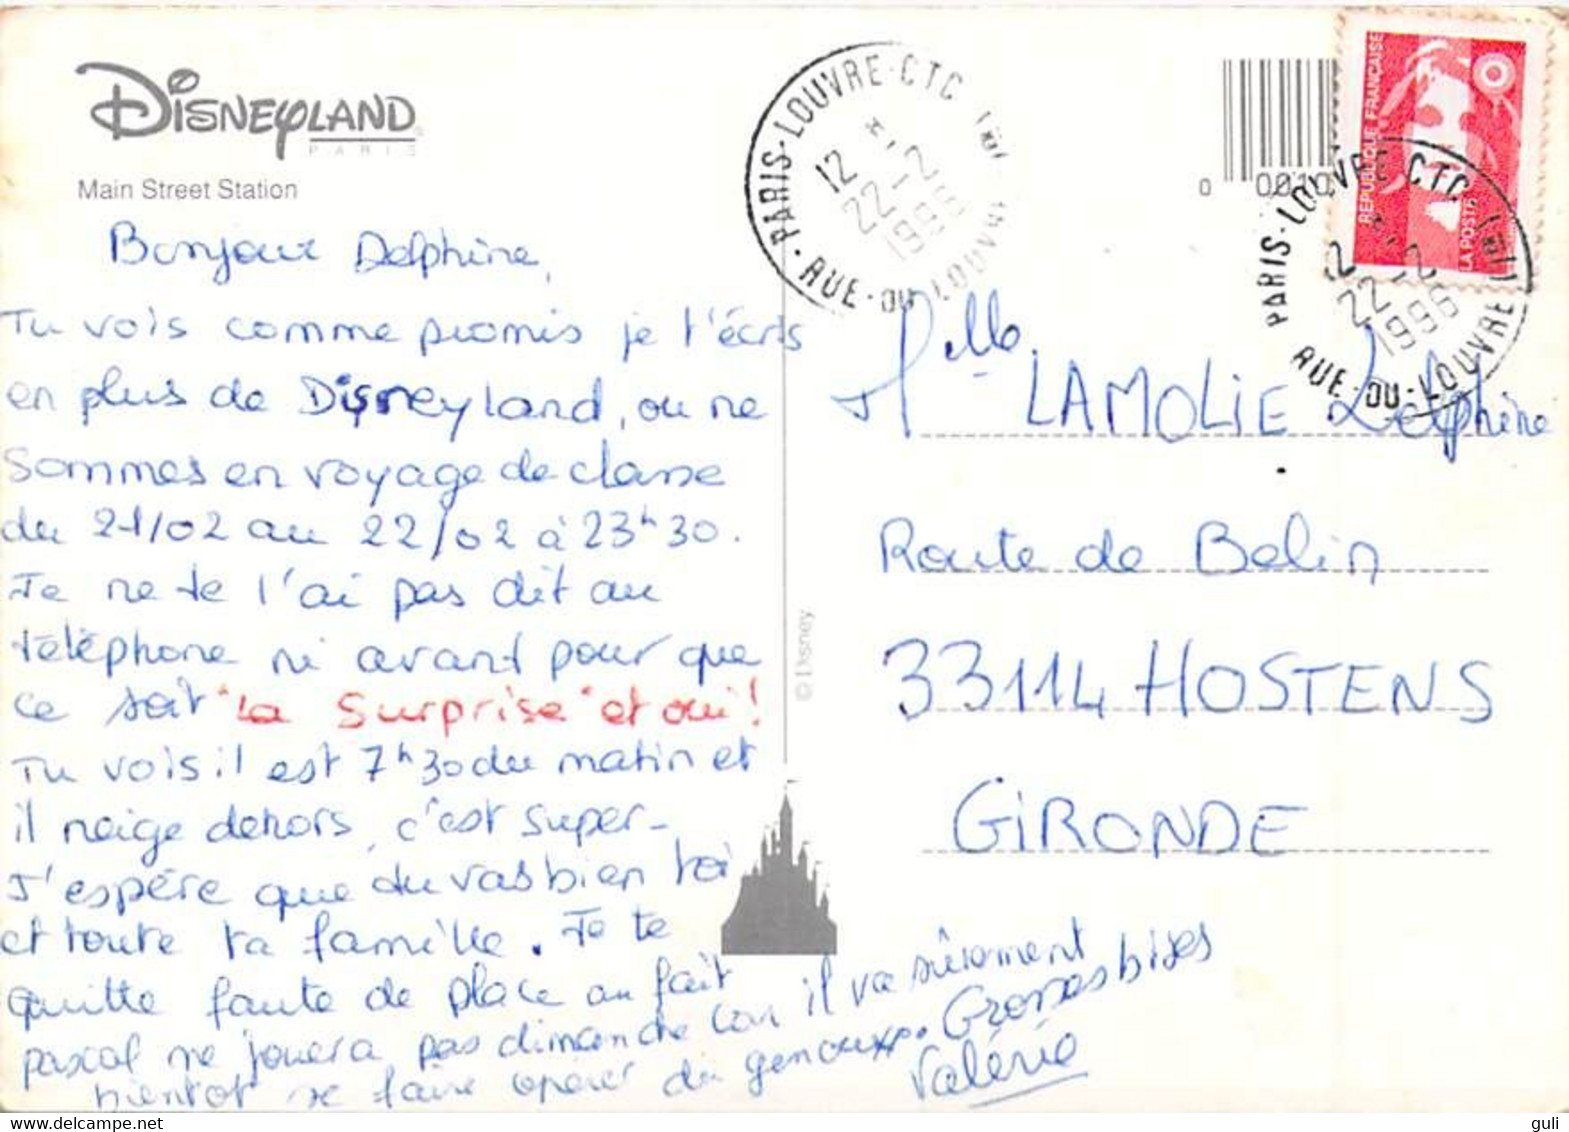 DISNEYLAND
PARIS
Main Street Station
Bonjour Delphine,
Tu vois comme promis je t'écris
en plus de Disneyland, ou ne
sommes en voyage de classe
du 21/02 au 22/02 à 23h30.
Je ne te l'ai pas dit au
téléphone ni avant pour que
ce soit "La Surprise" et oui!
Tu vois il est 7h30 du matin et
il neige dehors, c'est super-
J'espère que du vas bien toi
et toute ta famille. Je te
quitte faute de place au fait
pascal ne jouera pas dimanche car il va sûrement
bientot se faire operer du genoux. Grosses bises
Valérie
© Disney
PARIS-LOUVRE-CTC
12
22-2
1996
RUE-DU-LOUVRE
0
RÉPUBLIQUE FRANÇAISE
LA POSTE
PARIS-LOUVRE CTC
12
22-2
1996
RUE-DU-LOUVRE
Mlle
LAMOLIE Delphine
Route de Belin
33114 HOSTENS
GIRONDE
guli